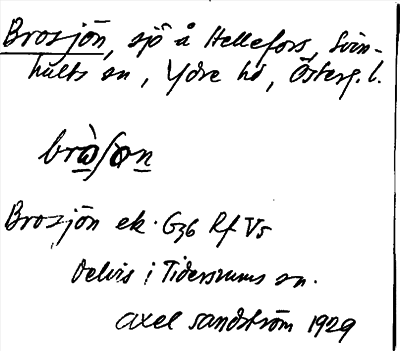 Brosjön, sjö å Hellefors, Svin-
hults sn, Ydre hd, Österg. l.
bròᶊon
Brosjön ek. G36 Rf V5
Delvis i Tidersrums sn.
Axel Sandström 1929